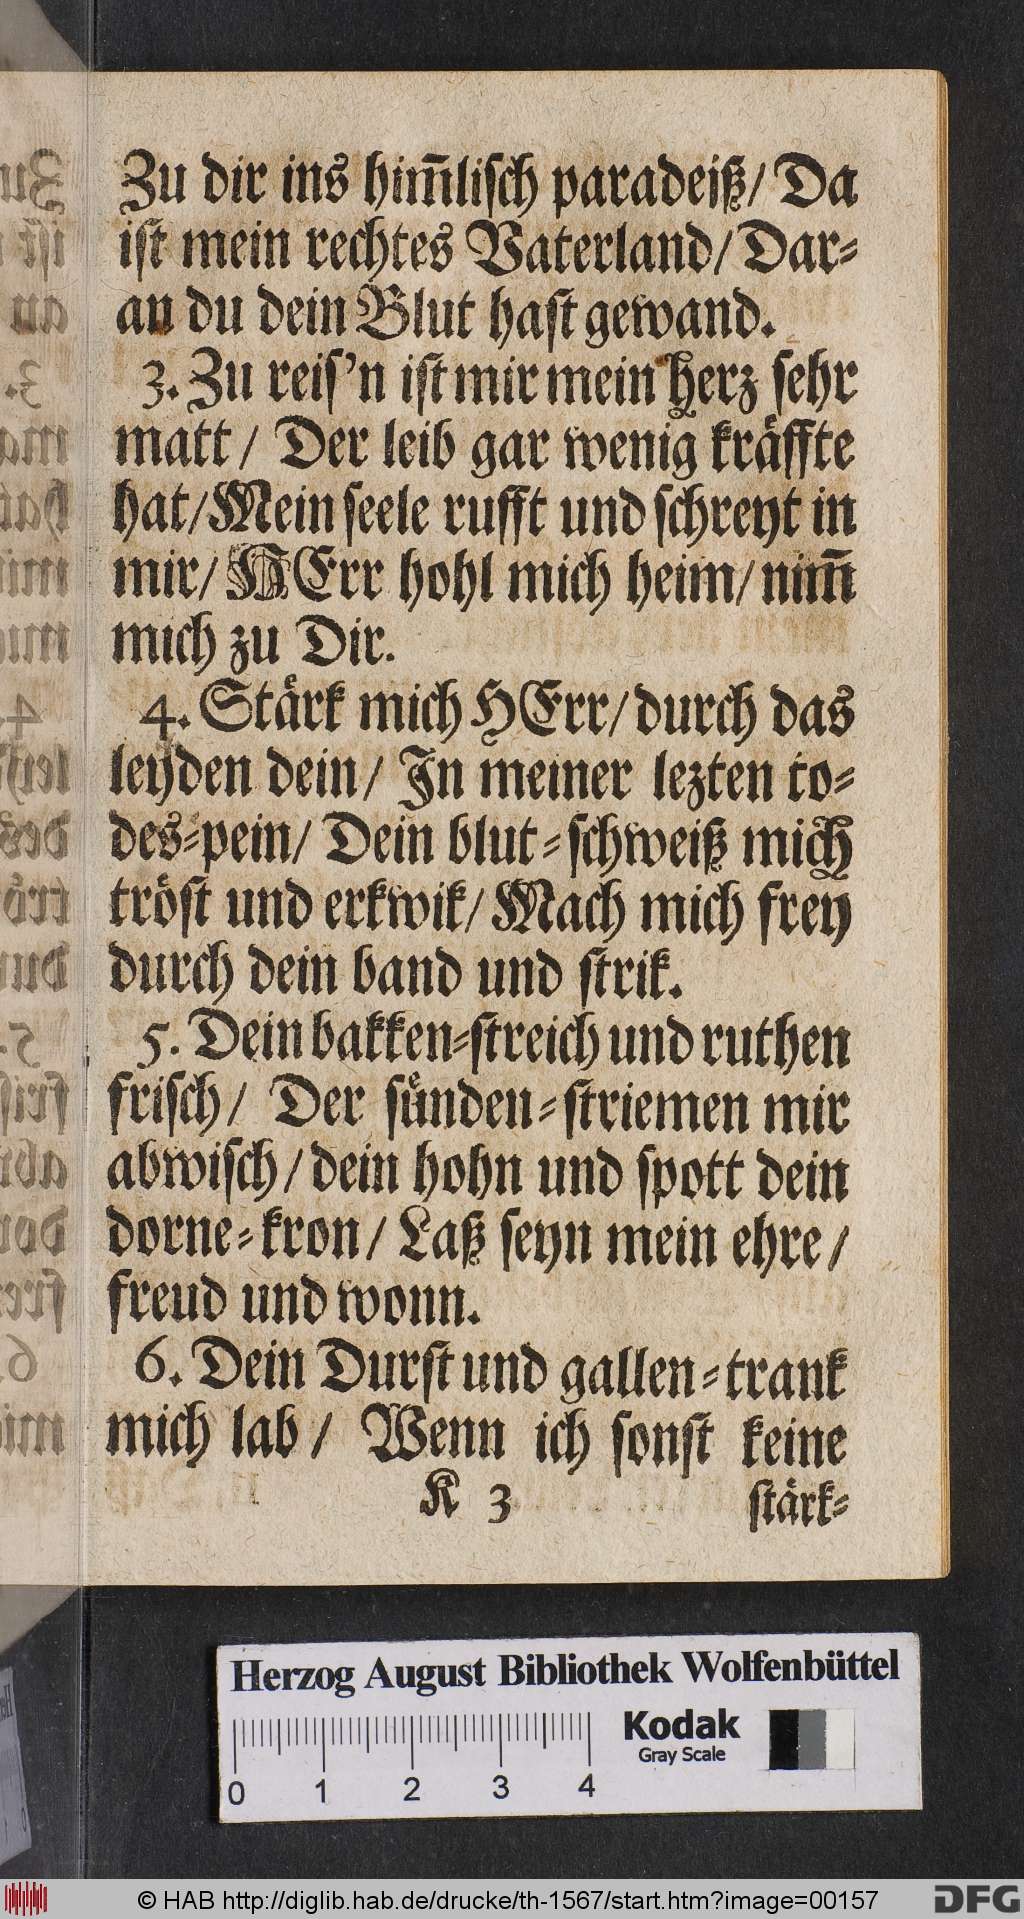 Zu dir ins him̄lisch paradeiß/ Da
ist mein rechtes Vaterland/ Dar-
an du dein Blut hast gewand.
3. Zu reis'n ist mir mein herz sehr
matt/ Der leib gar wenig kräffte
hat/ Mein seele rufft und schreyt in
mir/ HErr hohl mich heim/ nim̄
mich zu Dir.
4. Stärk mich HErr/ durch das
leyden dein/ In meiner lezten to-
des-pein/ Dein blut-schweiß mich
tröst und erkwik/ Mach mich frey
durch dein band und strik.
5. Dein bakken-streich und ruthen
frisch/ Der sünden-striemen mir
abwisch/ dein hohn und spott dein
dorne-kron/ Laß seyn mein ehre/
freud und wonn.
6. Dein Durst und gallen-trank
mich lab/ Wenn ich sonst keine
K 3 stärk-
Herzog August Bibliothek Wolfenbüttel
Kodak
Gray Scale
0 1 2 3 4
© HAB http://diglib.hab.de/drucke/th-1567/start.htm?image=00157
DFG